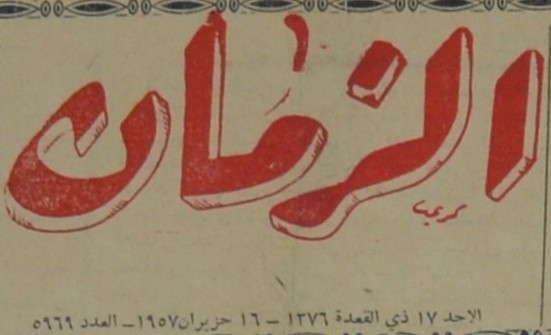 الزمان
الاحد ١٧ ذي القعدة ١٣٧٦ - ١٦ حزيران ١٩٥٧ - العدد ٥٩٦٩